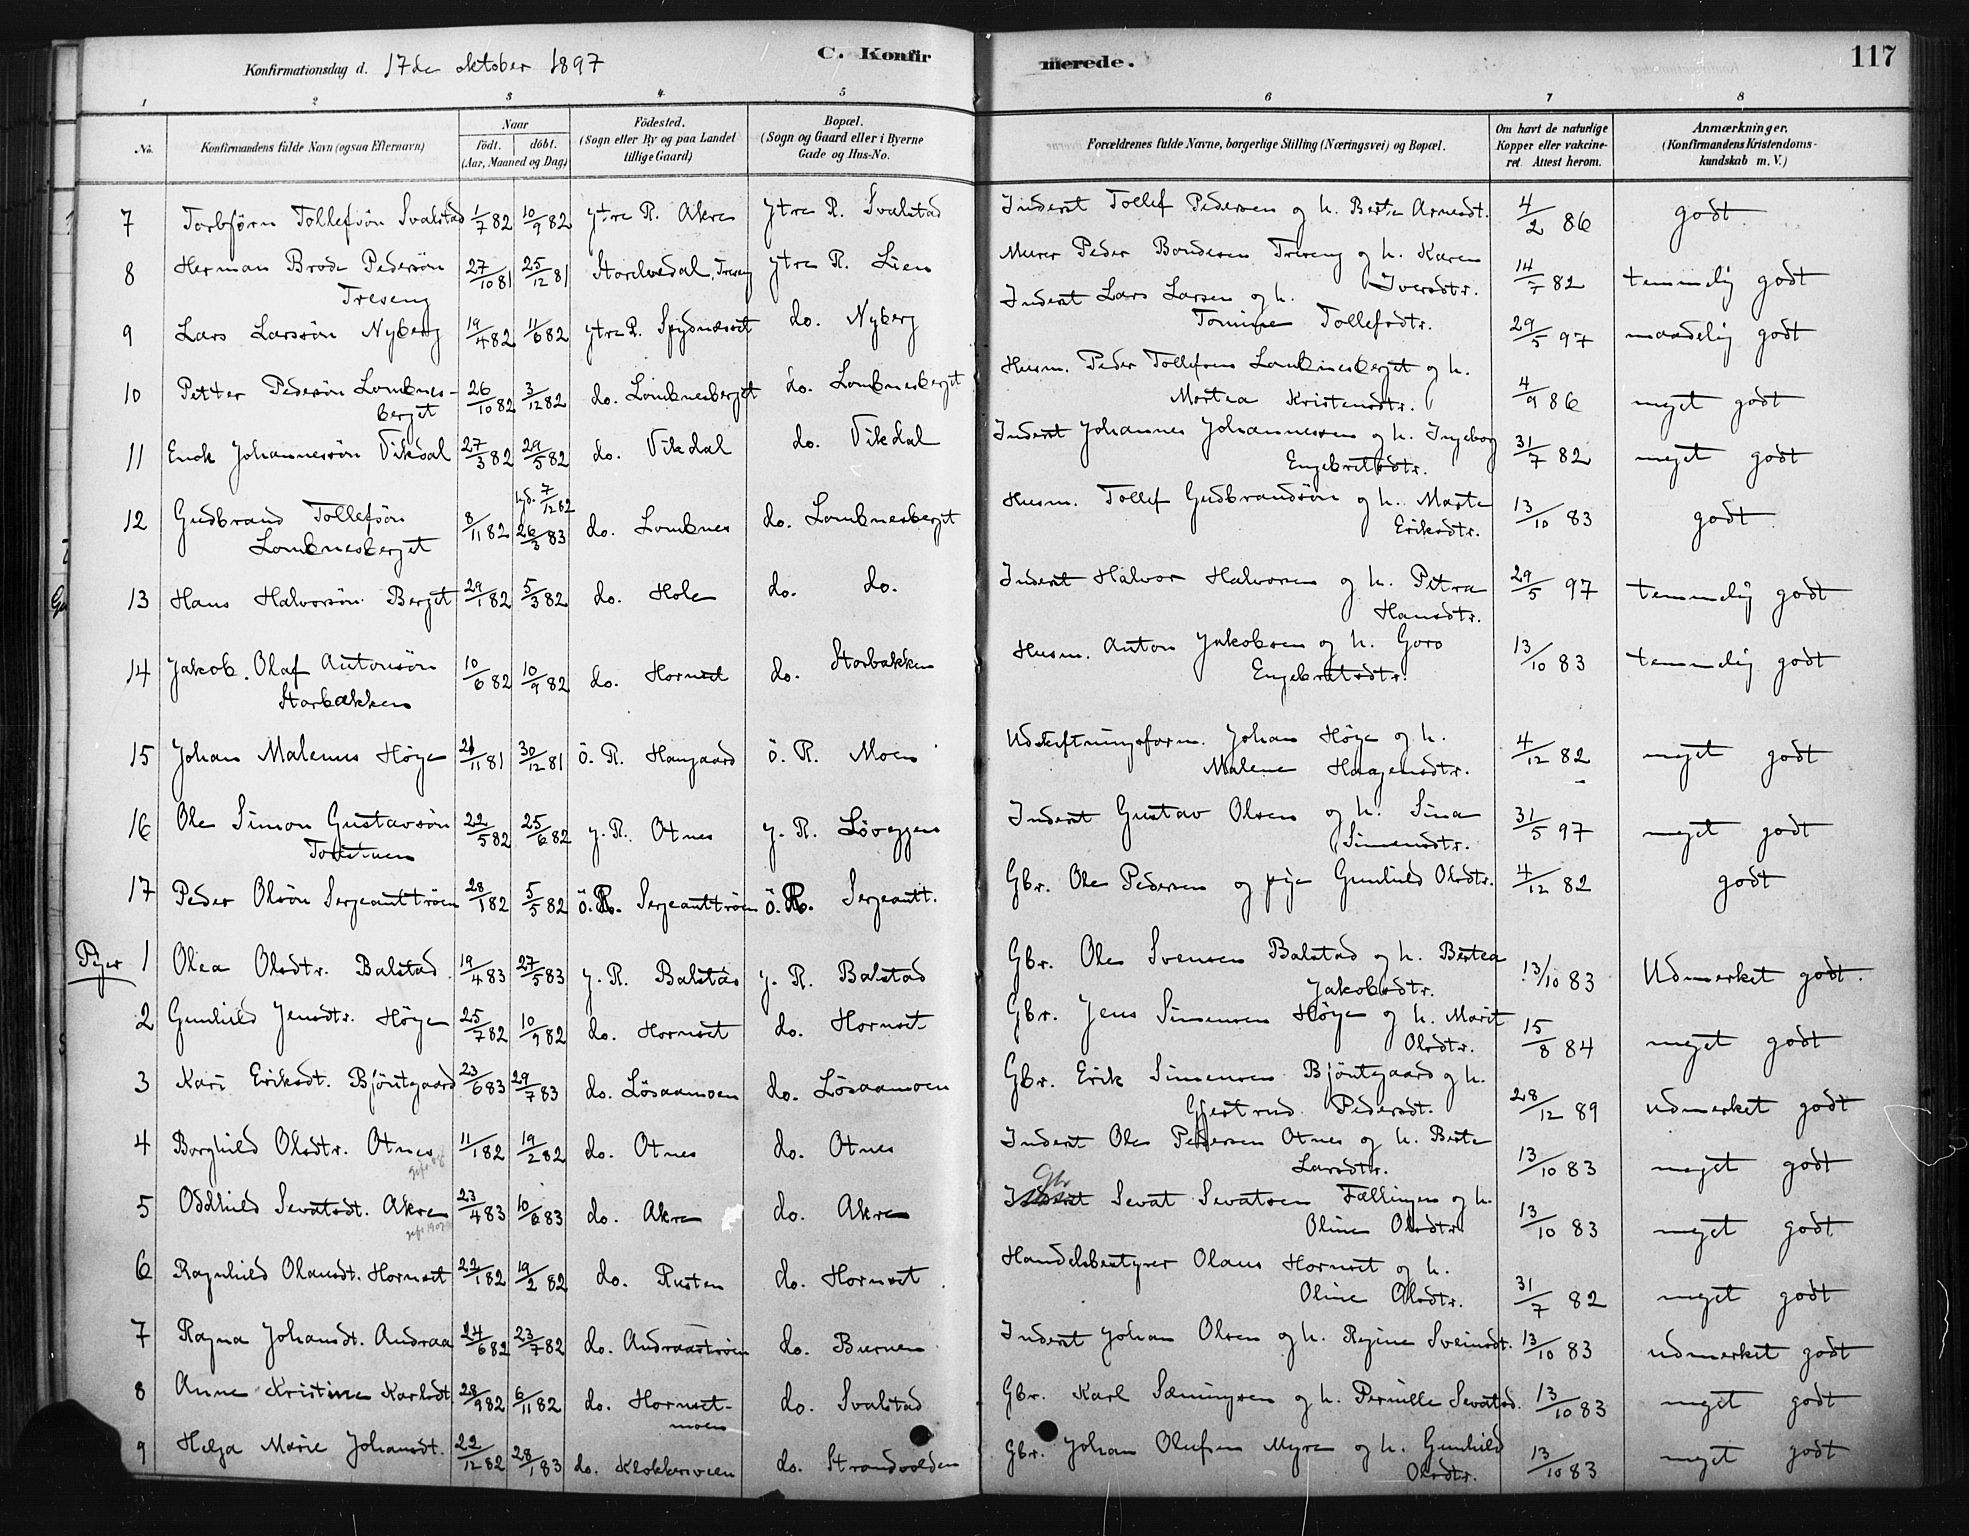 Konfirmationsdag d. 17de oktober 1897 C. Konfirmerede. 117
1 2 3 4 5 6 7 8
No. Konfirmandens fulde Navn (ogsaa Efternavn) Naar födt. döbt. (Aar, Maaned og Dag) Födested. (Sogn eller By og paa Landet tillige Gaard) Bopæl. (Sogn og Gaard eller i Byerne Gade og Hus-No. Forældrenes fulde Navne, borgerlige Stilling (Næringsvei) og Bopæl. Om havt de naturlige Kopper eller vakcineret. Attest herom. Anmærkninger. (Konfirmandens Kristendomskundskab m. V.)
7 Torbjörn Tollefsön Svalstad 1/7 82 10/9 82 ytre R. Akre ytre R. Svalstad Inderst Tollef Pedersen og h. Berte Arnesdt. 4/2 86 godt
8 Herman Brode Pedersön Treseng 27/10 81 25/12 81 Storelvedal, Treseng ytre R. Lien Murer Peder Bondesen Treseng og h. Karen Iversdtr. 14/7 82 temmelig godt
9 Lars Larssön Nyberg 19/4 82 11/6 82 ytre R. Spydnæsset do. Nyberg Inderst Lars Larsen og h. Tomine Tollefsdtr. 29/5 97 maadelig godt
10 Petter Pedersön Lombnesberget 26/10 82 3/12 82 do. Lombnesberget do. Lombnesberget Husm. Peder Tollefsen Lombnesberget og h. Martea Kristensdtr. 4/9 86 meget godt
11 Enok Johannessön Vikdal 27/3 82 29/5 82 do. Vikdal do. Vikdal Inderst Johannes Johannessen og h. Ingebog Engebretsdtr. 31/7 82 meget godt
12 Gudbrand Tollefsön Lombnesberget 8/11 82 hjd. 7/12 82 26/3 83 do. Lombnes do. Lombnesberget Husm. Tollef Gudbrandsön og h. Marte Eriksdtr. 13/10 83 godt
13 Hans Halvorsön Berget 29/1 82 5/3 82 do. Hole do. do. Inderst Halvor Halvorsen og h. Petra Hansdtr. 29/5 97 temmelig godt
14 Jakob Olaf Antonsön Storbækken 10/6 82 10/9 82 do. Hornset do. Storbækken Husm. Anton Jakobsen og h. Goro Engebretsdtr. 13/10 83 temmelig godt
15 Johan Malenus Höye 21/11 81 30/12 81 ö. R. Haugaard ö. R. Moen Udskiftningsform. Johan Höye og h. Malene Haagensdtr. 4/12 82 meget godt
16 Ole Simon Gustavsön 22/5 82 25/6 82 y. R. Otnes y. R. Löveggen Inderst Gustav Olsen og h. Sina Simensdtr. 31/5 97 meget godt
17 Peder Olsön Sergeanttröen 28/1 82 5/5 82 ö. R. Sergeanttröen ö. R. Sergeantt. Gbr. Ole Pedersen og pige Gunhild Olsdtr. 4/12 82 godt
Piger 1 Olea Olsdtr. Balstad 19/4 83 27/5 83 y. R. Balstad y. R. Balstad Gbr. Ole Svensen Balstad og h. Bertea Jakobsdtr. 13/10 83 Udmerket godt.
2 Gunhild Jensdtr. Höye 25/7 82 10/9 82 do. Hornset do. Hornset Gbr. Jens Simensen Höye og h. Marit Olsdtr. 15/8 84 meget godt
3 Kari Eriksdt. Bjöntgaard 23/6 83 29/7 83 do. Lösaamoen do. Lösaamoen Gbr. Erik Simensen Bjöntgaard og h. Gjertrud Pedersdt. 28/12 89 udmerket godt
4 Borghild Olsdtr. Otnes 11/1 82 19/2 82 do. Otnes do. Otnes Inderst Ole Pedersen Otnes og h. Berte Larsdtr. 13/10 83 meget godt
5 Oddhild Sevatsdt. Akre 23/4 83 10/6 83 do. Akre do. Akre Gbr. Inderst Sevat Sevatsen Fællingen og h. Oline Olsdtr. 13/10 83 meget godt
6 Ragnhild Olausdt. Hornset 22/1 82 19/2 82 do. Rusten do. Hornset Handelsbestyrer Olaus Hornset og h. Oline Olsdtr. 31/7 82 meget godt
7 Ragna Johansdt. Andraa 24/6 82 23/7 82 do. Andraatröen do. Burnen Inderst Johan Olsen og h. Regine Sveinsdt. 13/10 83 udmerket godt
8 Anne Kristine Karlsdt. 28/9 82 6/11 82 do. Hornsetmoen do. Svalstad Gbr. Karl Sæmingsen og h. Pernille Sevatsd. 13/10 83 meget godt
9 Helga Marie Johansdt. 22/12 82 28/1 83 do. Klokkerveen do. Strandvolden Gbr. Johan Olufsen Myre og h. Gunhild Olsdtr. 13/10 83 meget godt